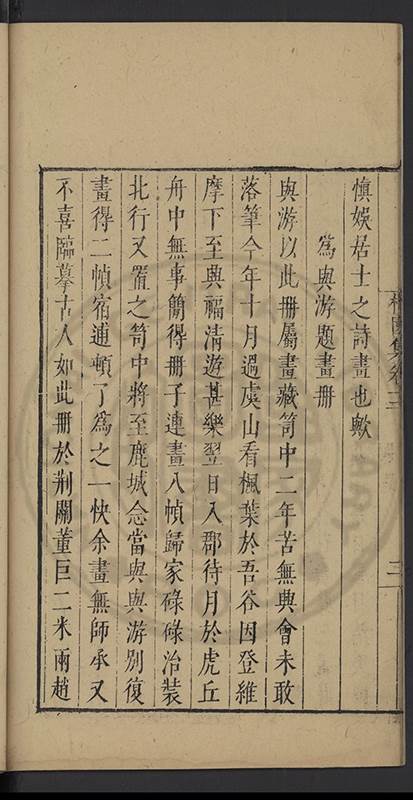 慎娛居士之詩畫也歟
爲與游題畫冊
與游以此冊屬畫藏笥中二年苦無興會未敢
落筆今年十月過虞山看楓葉於吾谷因登維
摩下至興福清遊甚樂翌日入郡待月於虎丘
舟中無事簡得冊子連畫八幀歸家碌碌治裝
北行又置之笥中將至鹿城念當與與游別復
畫得二幀宿逋頓了爲之一快余畫無師承又
不喜臨摹古人如此冊於荆關董巨二米兩趙
集卷三
三